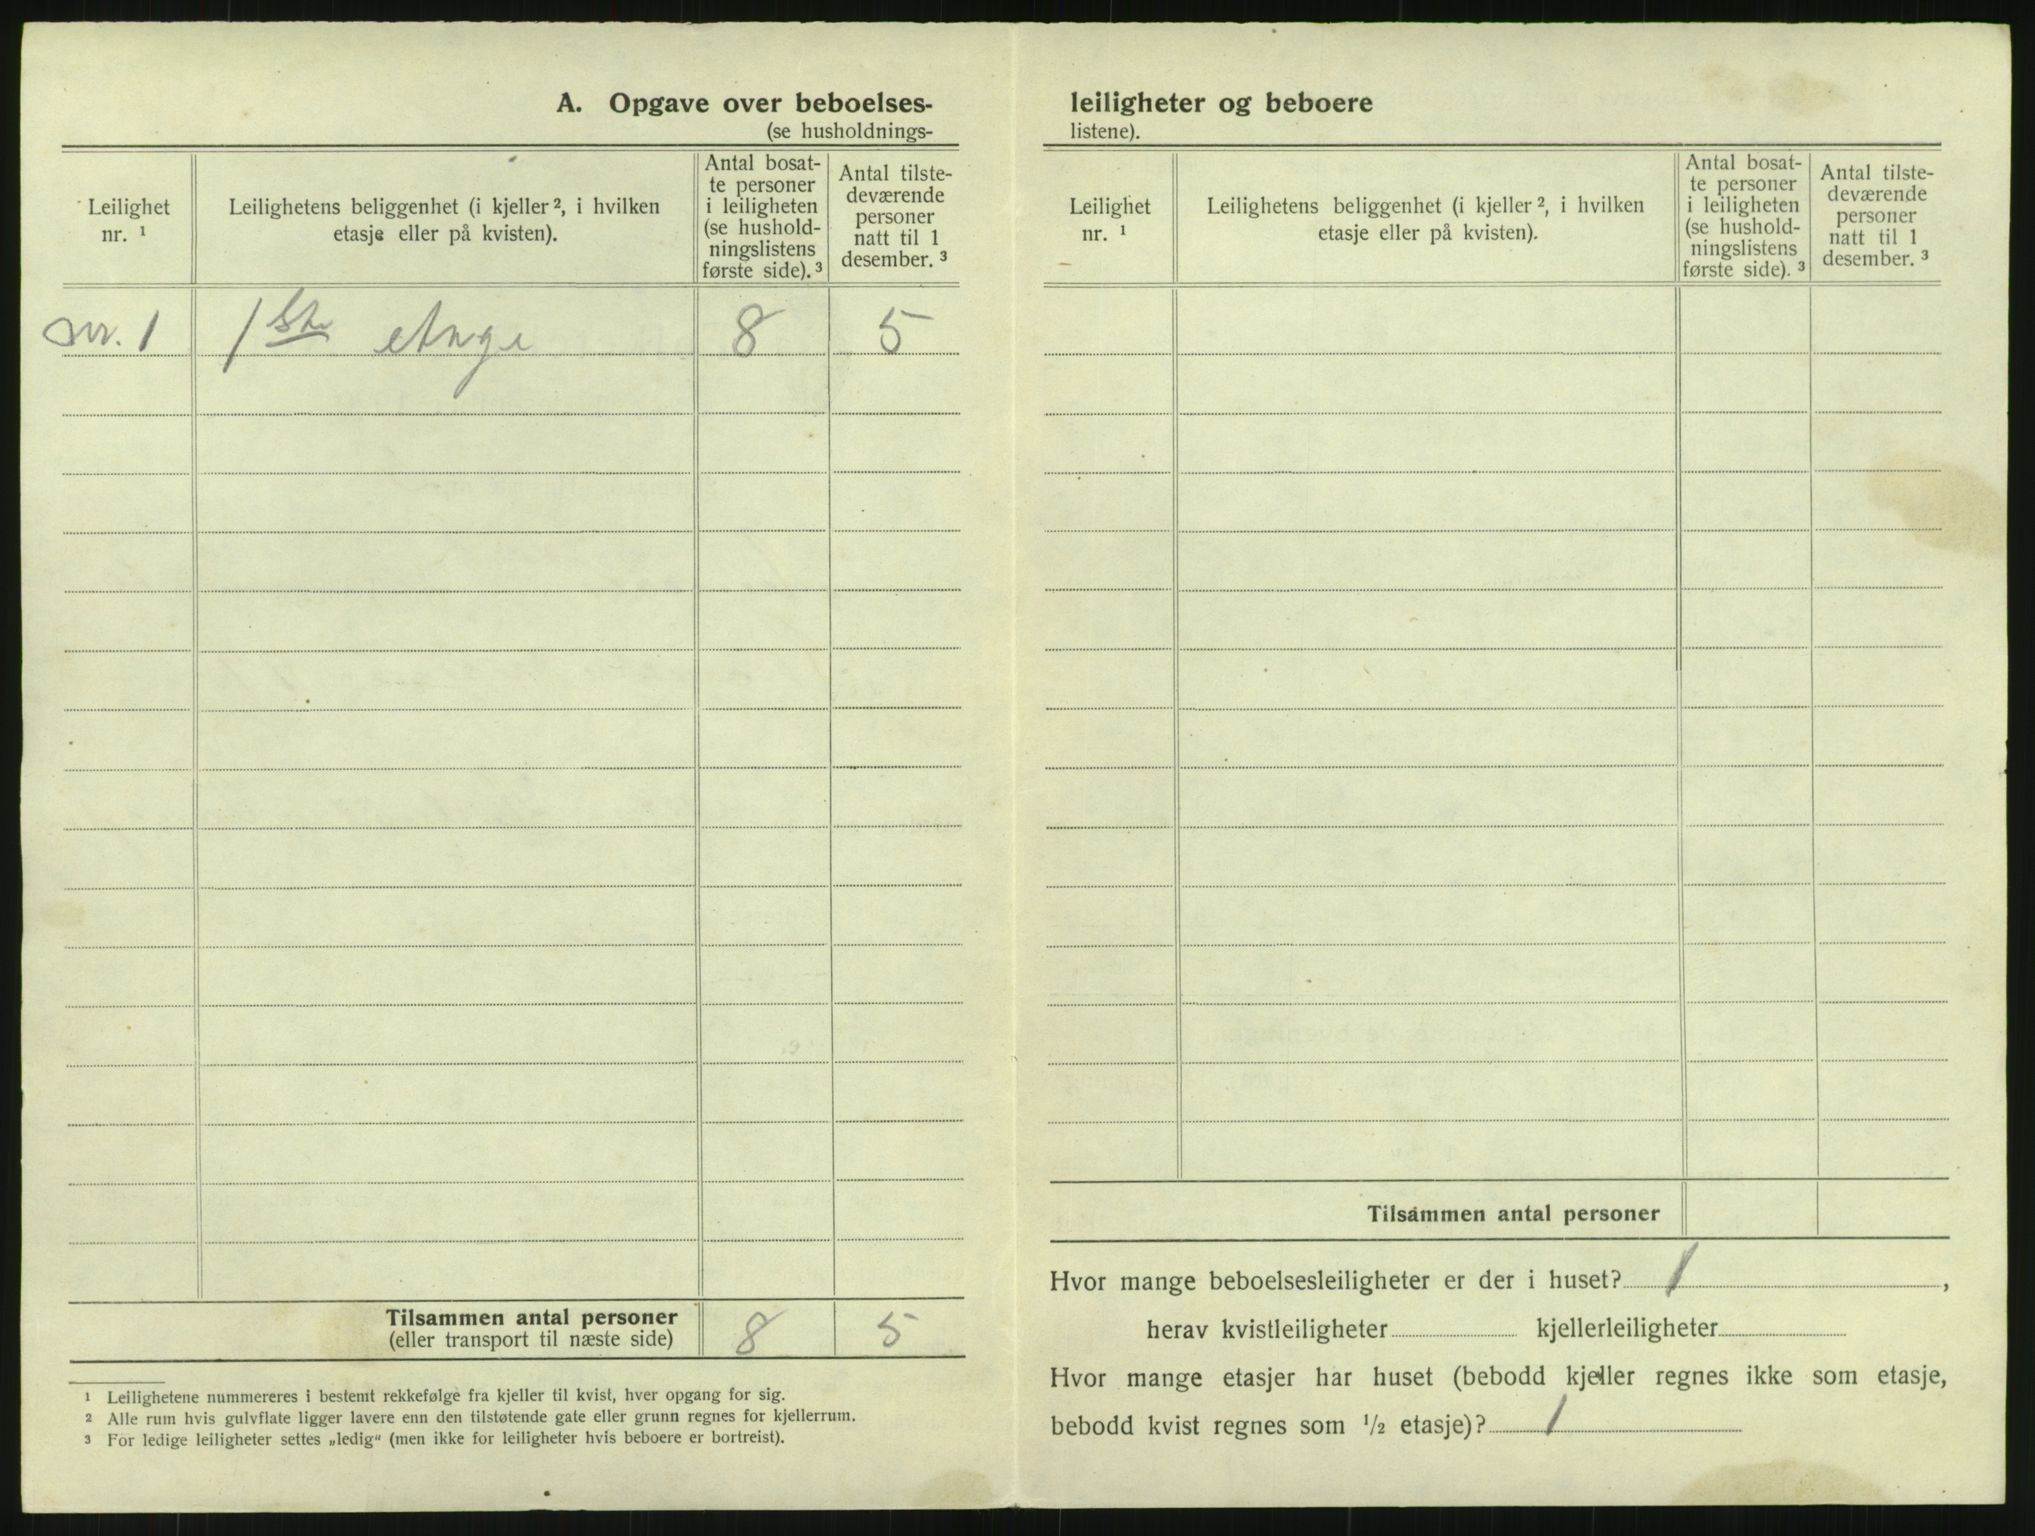 A. Opgave over beboelses-
(se husholdnings-
Leilighet
nr. ¹
Leilighetens beliggenhet (i kjeller ², i hvilken
etasje eller på kvisten).
Antal bosat-
te personer
i leiligheten
(se hushold-
ningslistens
første side). ³
Antal tilste-
deværende
personer
natt til 1
desember. ³
nr. 1 1ste etage 8 5
Tilsammen antal personer
(eller transport til næste side) 8 5
¹ Leilighetene nummereres i bestemt rekkefølge fra kjeller til kvist, hver opgang for sig.
² Alle rum hvis gulvflate ligger lavere enn den tilstøtende gate eller grunn regnes for kjellerrum.
³ For ledige leiligheter settes „ledig“ (men ikke for leiligheter hvis beboere er bortreist).
leiligheter og beboere
listene).
Leilighet
nr. ¹
Leilighetens beliggenhet (i kjeller ², i hvilken
etasje eller på kvisten).
Antal bosat-
te personer
i leiligheten
(se hushold-
ningslistens
første side). ³
Antal tilste-
deværende
personer
natt til 1
desember. ³
Tilsammen antal personer
Hvor mange beboelsesleiligheter er der i huset? 1,
herav kvistleiligheter kjellerleiligheter
Hvor mange etasjer har huset (bebodd kjeller regnes ikke som etasje,
bebodd kvist regnes som ½ etasje)? 1